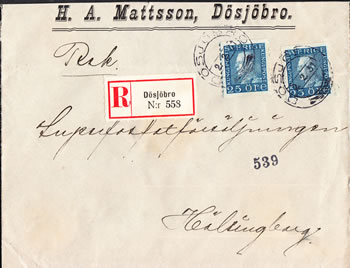 H. A. Mattsson, Dösjöbro.
Rek.
DÖSJEBRO
SVERIGE
25 ÖRE
SVERIGE
25 ÖRE
R
Dösjöbro
N:r 558
539
Hälsingborg